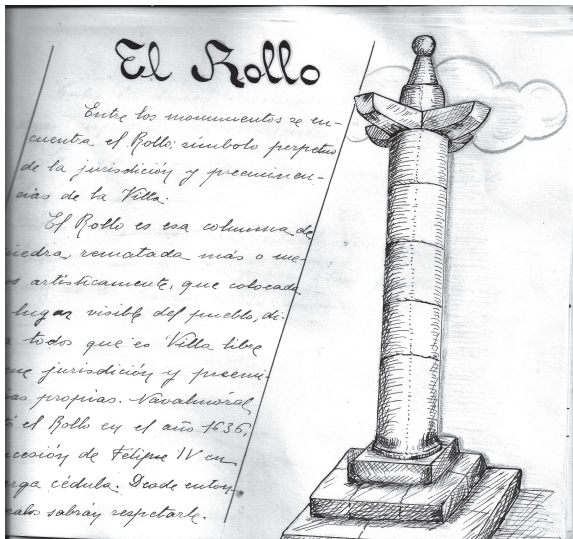 El Rollo
Entre los monumentos se en-
cuentra el Rollo; símbolo perpetuo
de la jurisdición y preeminen-
cias de la Villa.
El Rollo es esa columna de
iedra, rematada más o me-
os artísticamente, que colocada
lugar visible del pueblo, di-
a todos que es Villa libre
ne jurisdición y preemi-
ias propias. Navalmoral,
ó el Rollo en el año 1636,
ncesión de Felipe IV en
arga cédula. Desde enton-
sabrán respetarle.